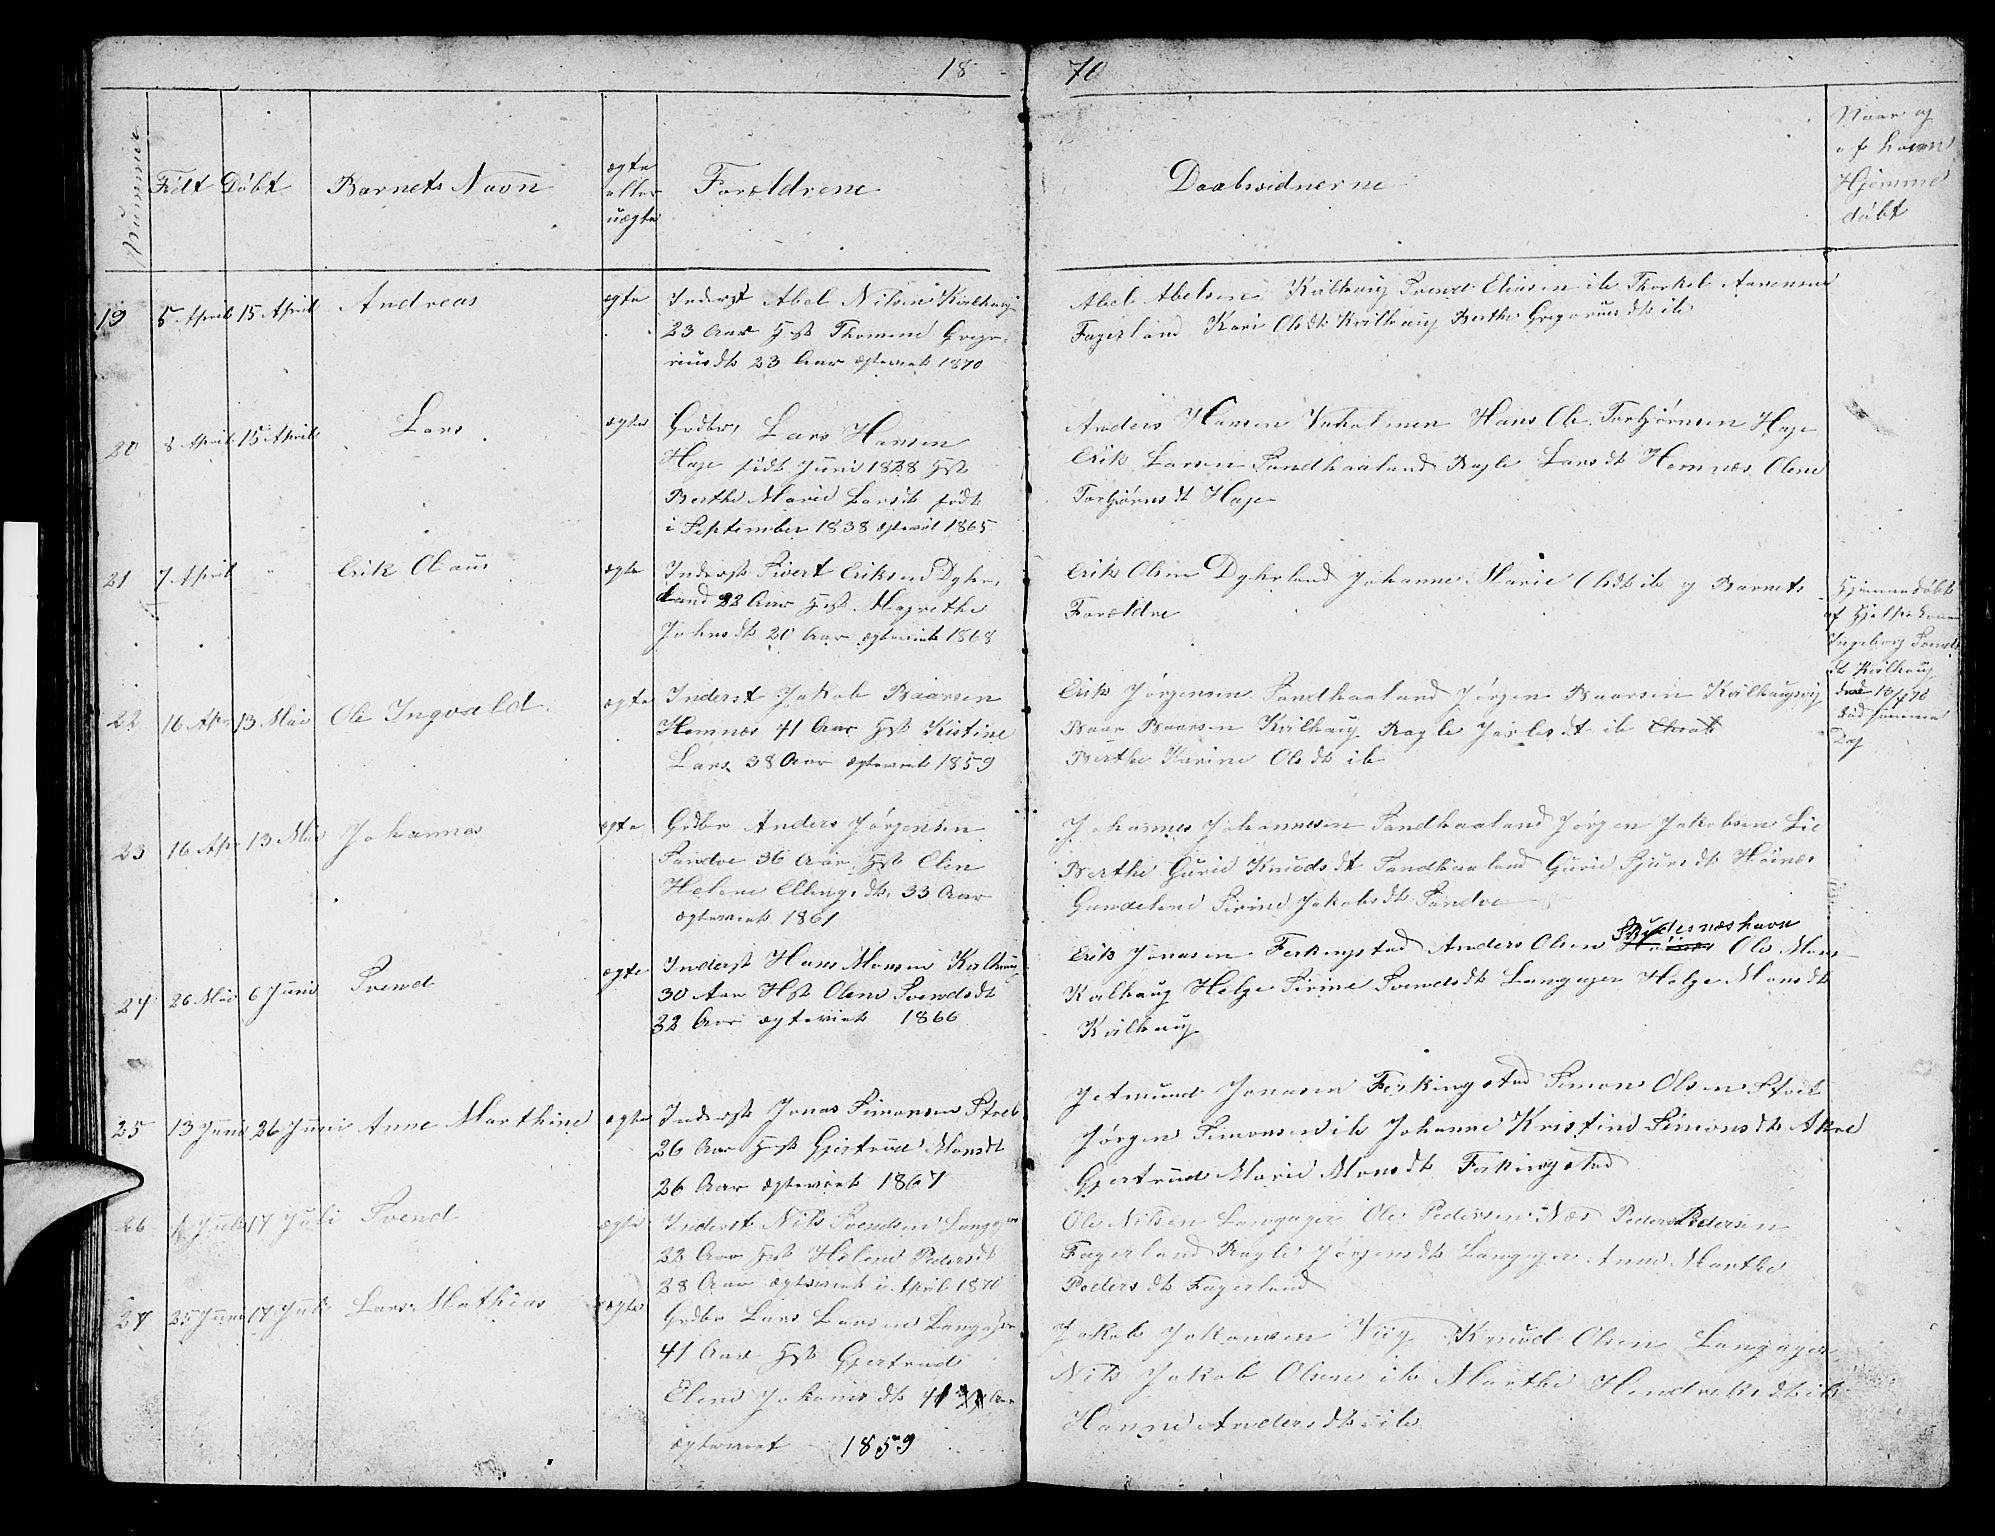 18 70
Nummer
Födt
Döbt
Barnets Navn
ægte
eller
uægte
Forældrene
Daabsvidnerne
Naar og
af hvem
Hjemme
döbt
19 5 April 15 April Andreas ægte
Inderst Abel Nilsen Kvilhaug
23 Aar Hst Thomine Grego-
riusdt 23 Aar ægteviet 1870
Abel Abelsen Kvilhaug Svend Eliasen ib Thorkel Aanensen
Fagerland Kari Olsdt Kvilhaug Berthe Gregoriusdt ib
20 8 April 15 April Lars ægte
Grdbr, Lars Hansen
Hage födt Juni 1828 Hst
Berthe Marie Larsdt födt
i September 1838 ægteviet 1865
Anders Hansen Hans Ole Torbjörnsen Hage
Erik Larsen Sandhaaland Ragle Larsdt Hemnæs Olene
Torbjörnsdt Hage
21 7 April " Erik Olaus ægte
Inderst Sivert Eriksen Dyhr,
land 22 Aar Hst Magrethe
Johnsdt 20 Aar ægteviet 1868
Erik Olsen Dyhrland Johanne Marie Olsdt ib og Barnets
Forældre
Hjemmedöbt
af Hjelpekonen
Ingeborg Svends
dt Kvilhaug
den 10/4 70
död samme
Dag
22 16 Apr 13 Mai Ole Ingvald ægte
Inderst Jakob Baarsen
Hemnæs 41 Aar Hst Kistine
Lars 38 Aar ægteviet 1859
Erik Jörgensen Sandhaaland Jörgen Baarsen Kvilhaugsvig
Baar Baarsen Kvilhaug Ragle dt ib
Berthe Karine Olsdt ib
23 16 Apr 13 Mai Johannes ægte
Grdbr Anders Jörgensen
Sandve 36 Aar Hst Olene
Helene Ellingsdt 33 Aar
ægteviet 1861
Johannes Johannesen Sandhaaland Jörgen Jakobsen Lie
Berthe Gurie Knudsdt Sandhaaland Gurie Sjursdt Höinæs
Gundelene Sirine Jakobsdt Sandve
24 26 Mai 6 Juni Svend ægte
Inderst Hans Monsen Kvilhaug
30 Aar Hst Olene Svendsdt
32 Aar ægteviet 1866
Skudesnæshavn
Erik Jonasen Ferkingstad Anders Olsen Ole Mons-
Kvilhaug Helge Sirine Svendsdt Langager Helge Monsdt
Kvilhaug
25 13 Juni 26 Juni Anne Marthine ægte
Inderst Jonas Simonsen Stol
26 Aar Hst Gjertrud Monsdt
26 Aar ægteviet 1867
Jetmund Jonasen Ferkingstad Simon Olsen Stol
Jörgen Simonsen ib Johanne Kristine Simonsdt Akre
Gjertrud Marie Monsdt Ferkingstad
26 Juli 17 Juli Svend ægte
Inderst Nils Svendsen Langager
22 Aar Hst Helene Pedersdt
28 Aar ægteviet i April 1870
Ole Nilsen Langager Ole Pedersen Næs Peder Pedersen
Fagerland Ragle Jörgensdt Langager Anne Marthe
Pedersdt Fagerland
27 25 Juni 17 Juli Lars Mathias ægte
Grdbr Lars Larsen Langager
41 Aar Hst Gjertrud
Elene Johansdt 41 Aar
ægteviet 1859
Jakob Johansen Viig Knud Olsen Langager
Nils Jakob Olsen ib Marthe Hendriksdt ib
Hanne Andersdt ib